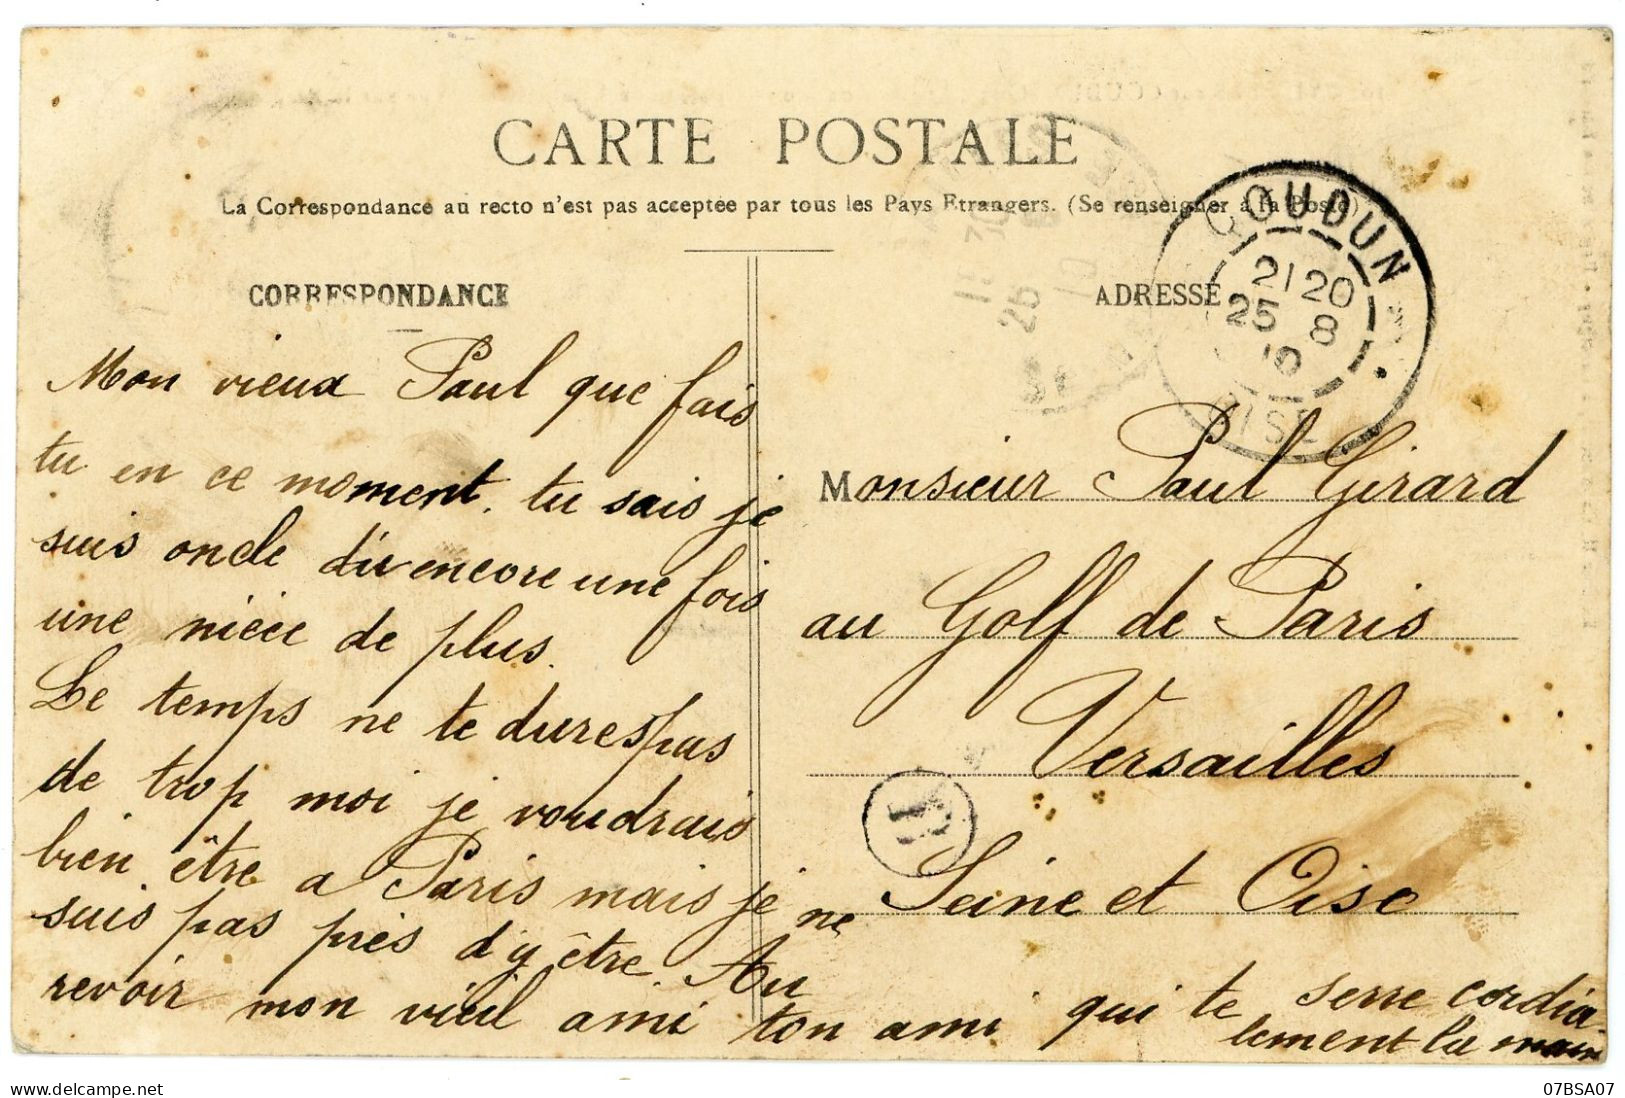 CARTE POSTALE
La Correspondance au recto n'est pas acceptée par tous les Pays Etrangers. (Se renseigner à la Poste)
CORRESPONDANCE
Mon vieux Paul que fais
tu en ce moment. tu sais je
suis oncle dir encore une fois
une nièce de plus.
Le temps ne te dures pas
de trop moi je voudrais
bien être a Paris mais je ne
suis pas près d'y être. Au
revoir mon vieil ami ton ami qui te serre cordia-
lement la main
ADRESSE
COUDUN
21 20
25 8
10
OISE
Monsieur Paul Girard
au Golf de Paris
Versailles
Seine et Oise
07BSA07
delcampe.net